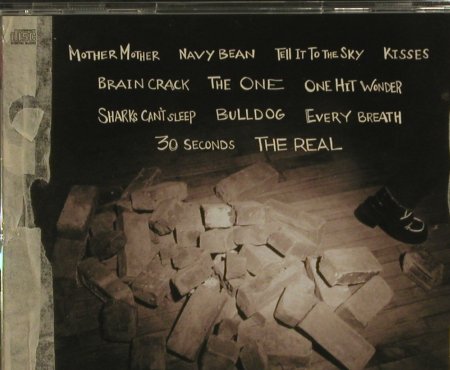 MOTHER MOTHER NAVY BEAN TELL IT TO THE SKY KISSES
BRAIN CRACK THE ONE ONE HIT WONDER
SHARKS CAN'T SLEEP BULLDOG EVERY BREATH
30 SECONDS THE REAL